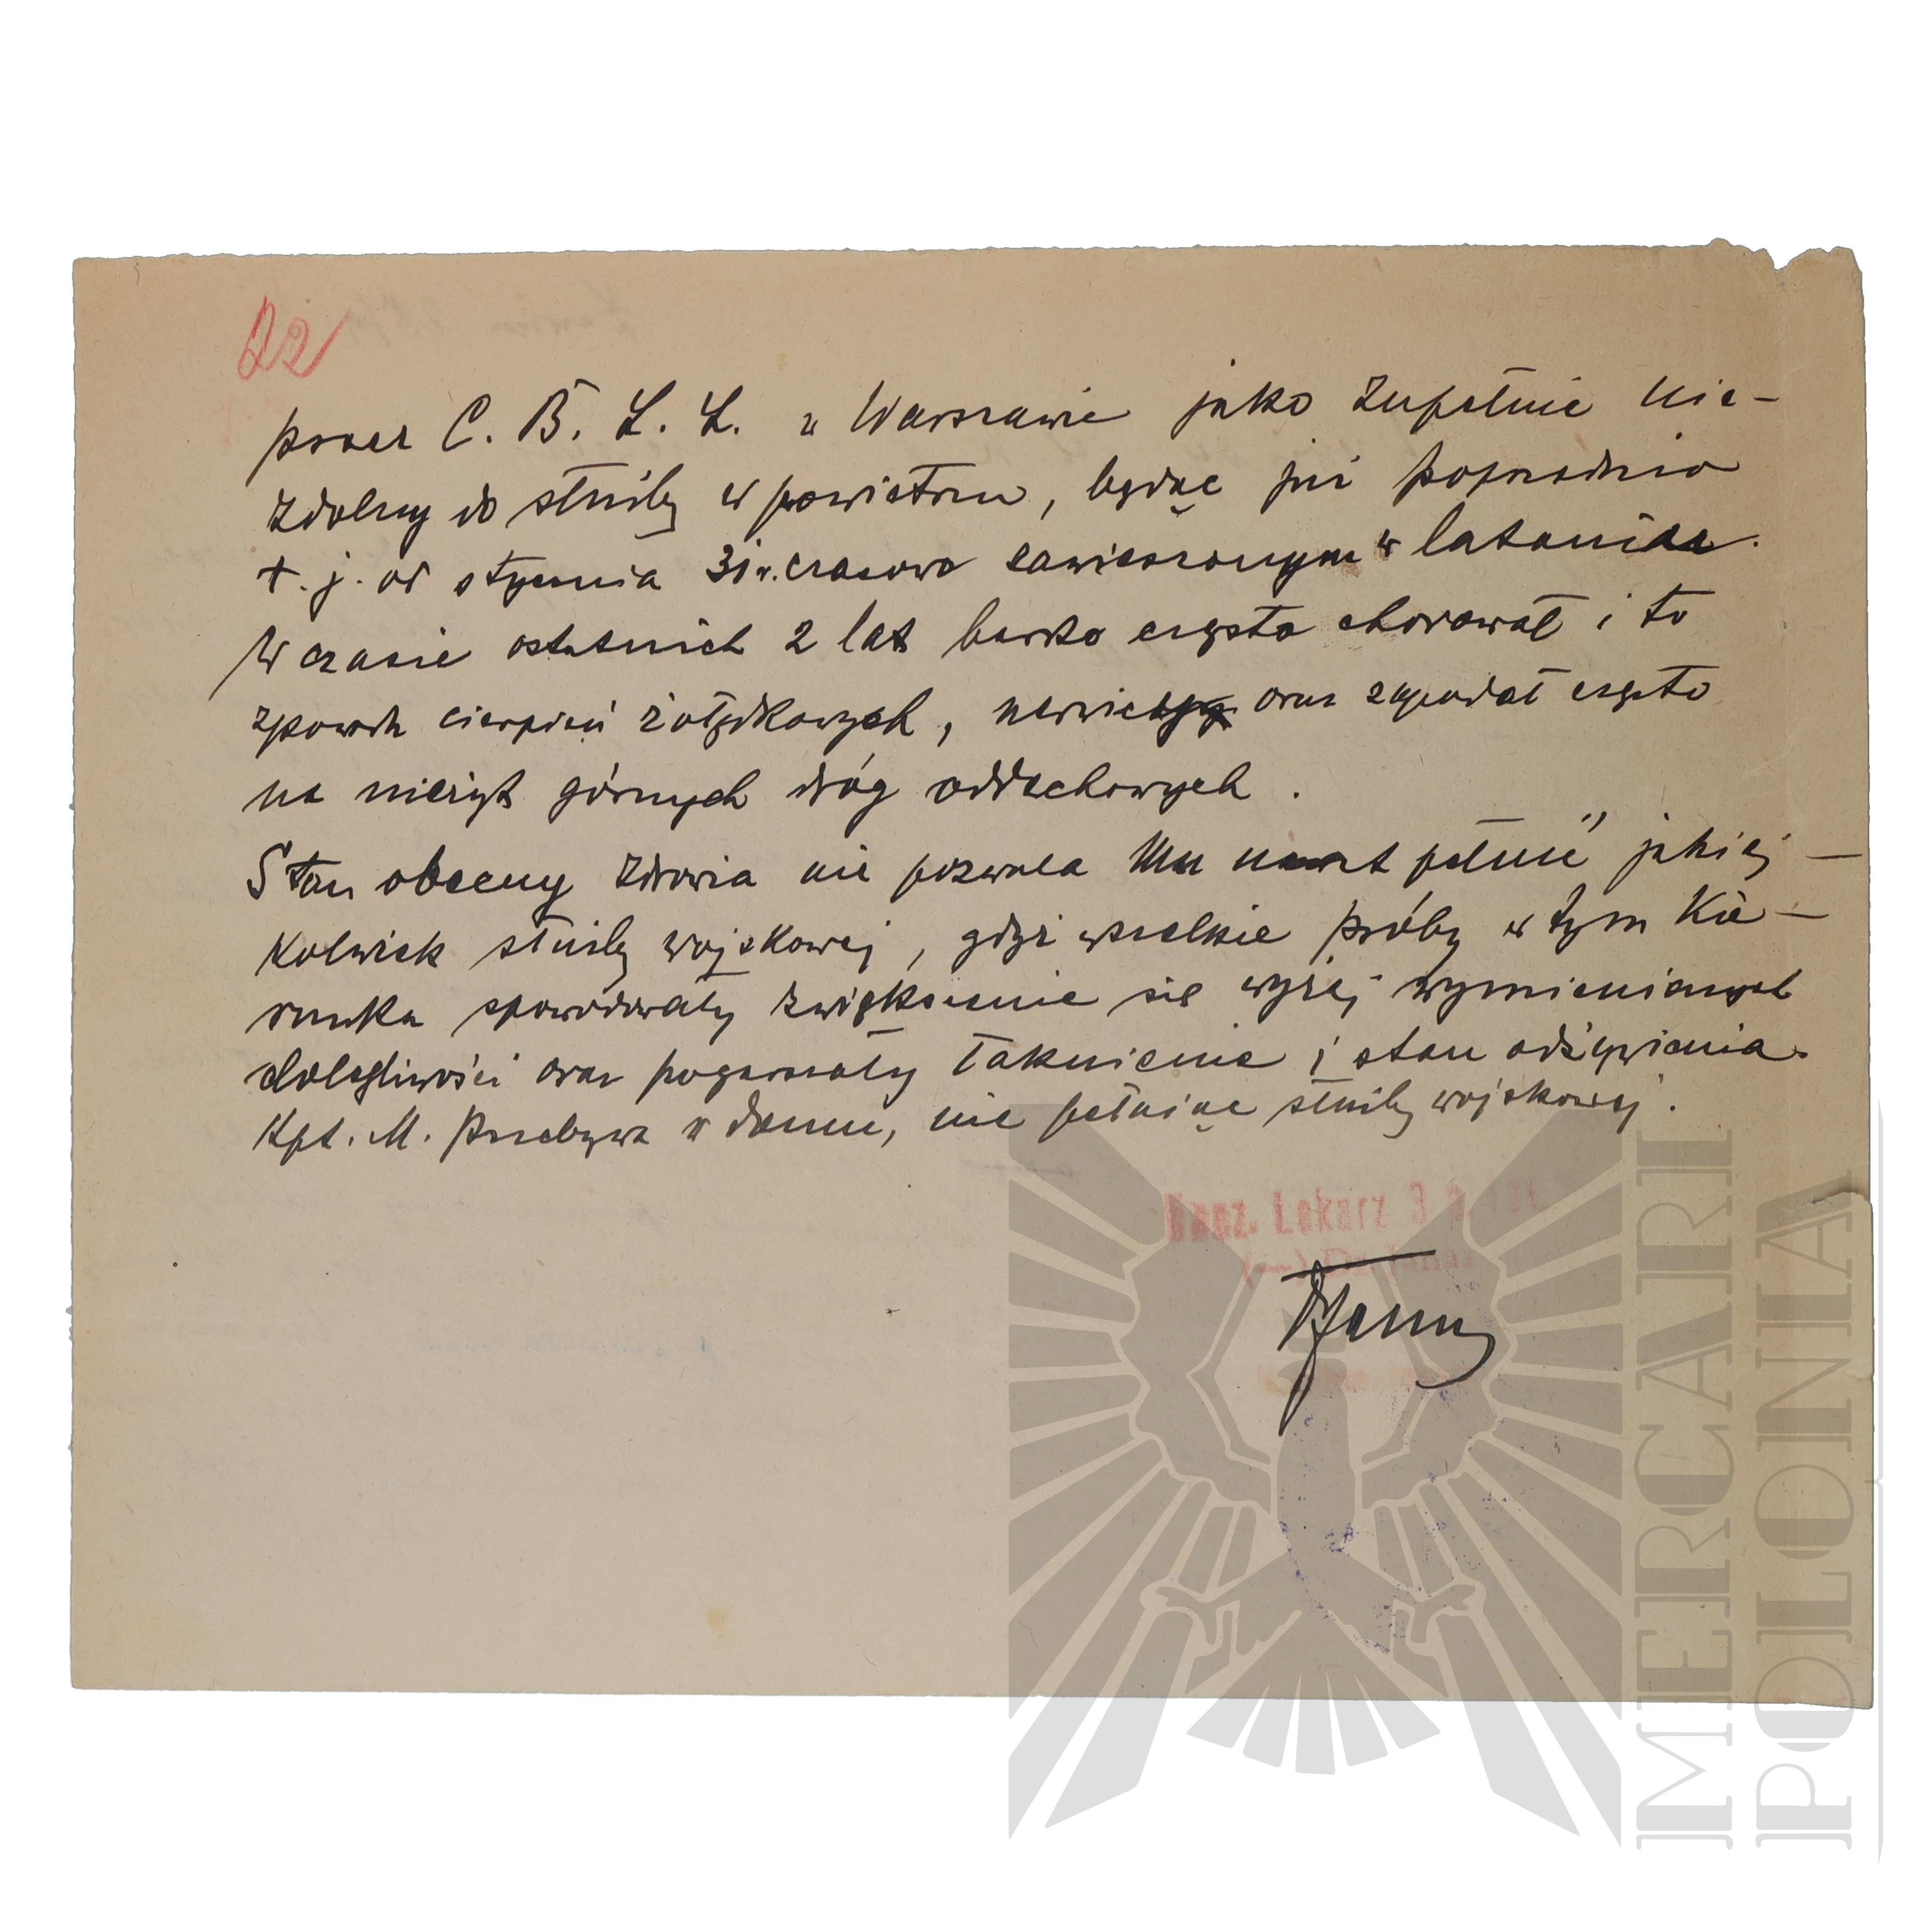 22
przez C. B. L. L. w Warszawie jako zupełnie nie-
zdolny do służby w powietrzu, będąc już poprzednio
t. j. od stycznia 31 r. czasowo zawieszonym w lataniu.
W czasie ostatnich 2 lat bardzo często chorował i to
zpowodu cierpień żołądkowych, nerwicy oraz zapadał często
na nieżyt górnych dróg oddechowych.
Stan obecny zdrowia nie pozwala Mu nawet pełnić jakiej-
kolwiek służby wojskowej, gdyż wszelkie próby w tym kie-
runku spowodowały zwiększenie się wyżej wymienionych
dolegliwości oraz pogarszały łaknienie i stan odżywienia.
Kpt. M. przebywa w domu, nie pełniąc służby wojskowej.
Lekarz 3
MERCARI
POLONIA